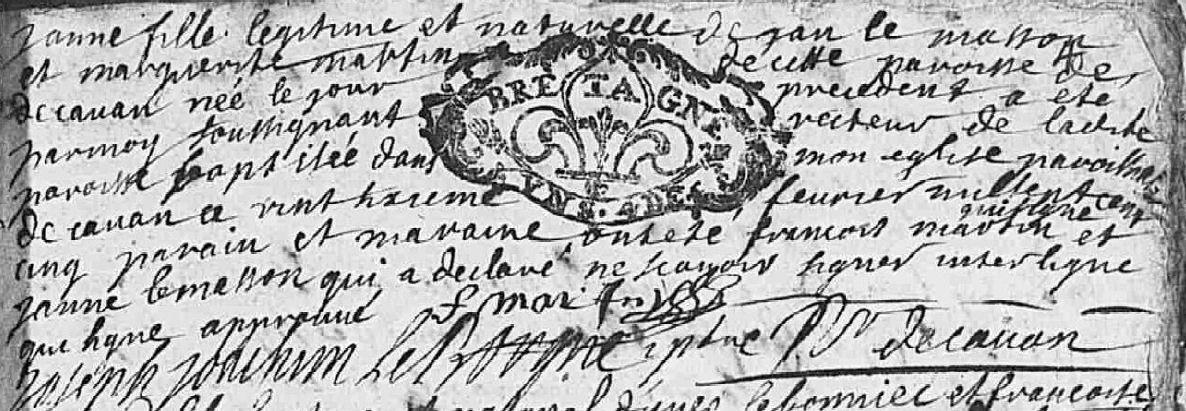 janne fille legitime et naturelle de jan le masson
et marguerite martin de cette paroisse de
de cavan née le jour precedent a eté
par moy soussignant recteur de ladite
paroisse baptisée dans mon eglise paroissialle
de cavan ce vint huxieme fevrier mil sept cent
cinq parain et maraine ont eté francois martin qui signe et
janne lemasson qui a declaré ne scavoir signer interligne
qui signe approuvé f martin
joseph joachim ptre Rr de cavan
BRETAGNE